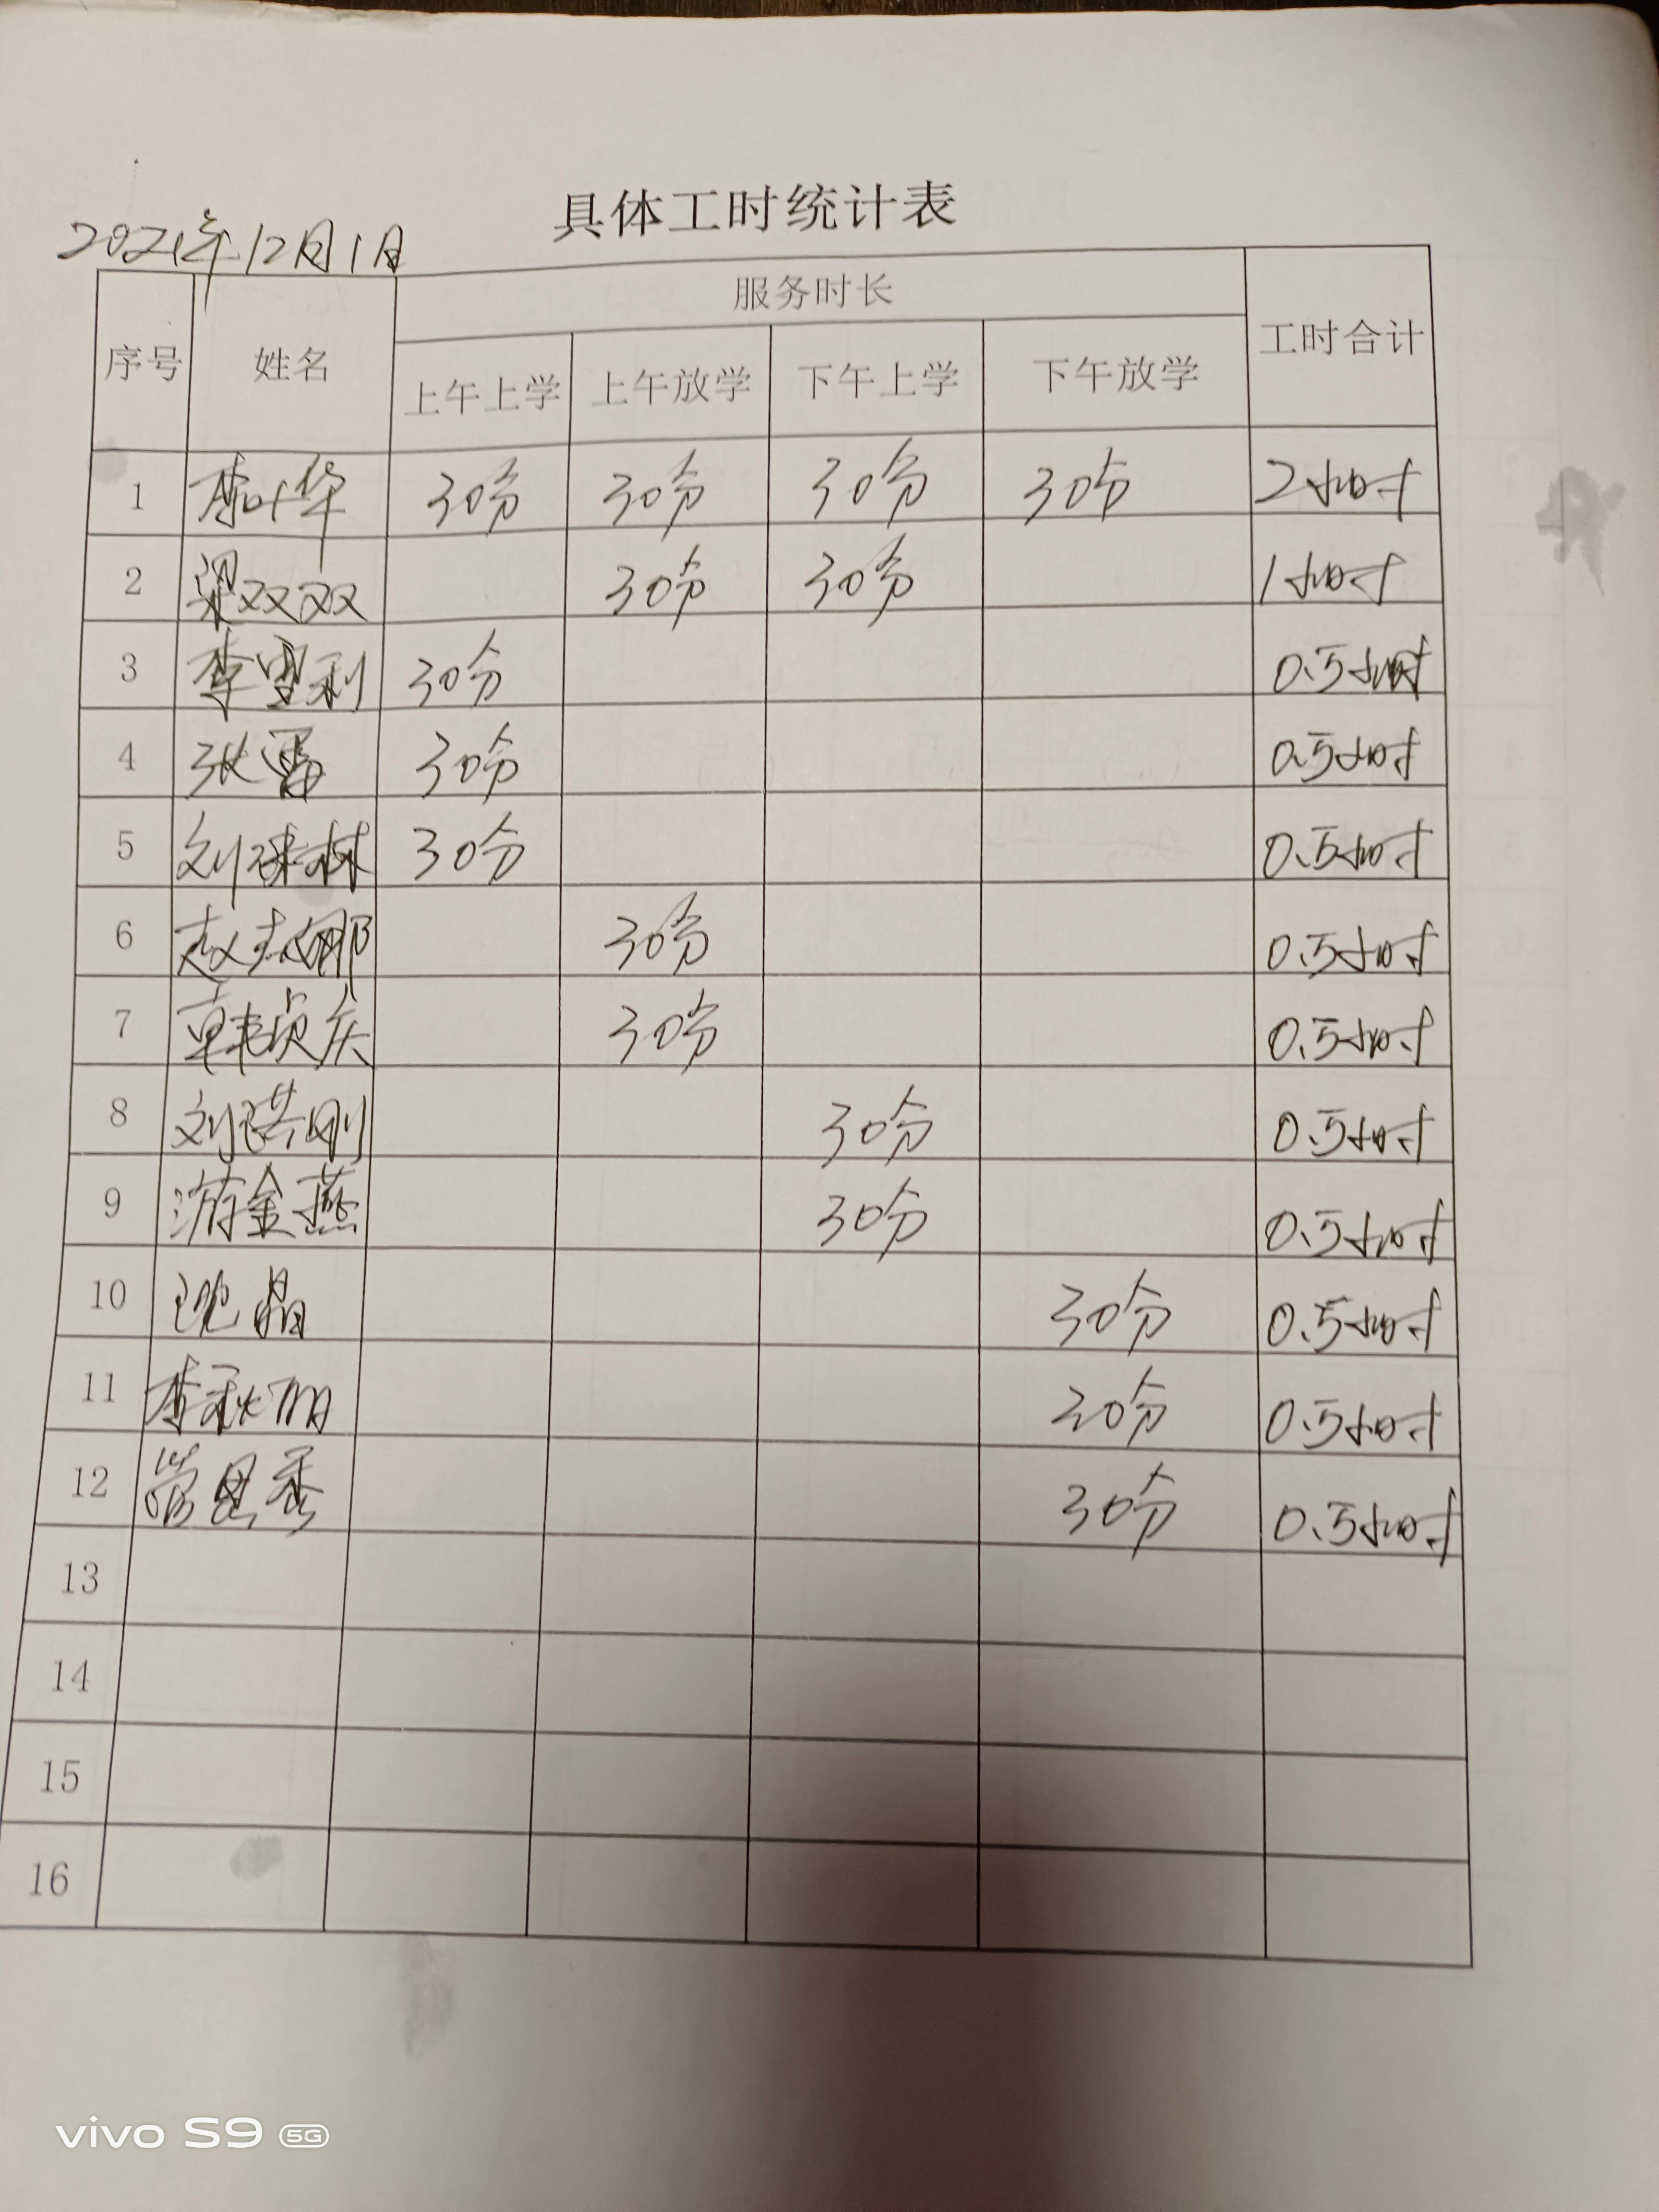 具体工时统计表
2021年12月1日
序号 姓名 服务时长 工时合计
上午上学 上午放学 下午上学 下午放学
1 李叶华 30分 30分 30分 30分 2小时
2 梁双双 30分 30分 1小时
3 李雪利 30分 0.5小时
4 张雷 30分 0.5小时
5 刘琳琳 30分 0.5小时
6 赵志娜 30分 0.5小时
7 韩贞庆 30分 0.5小时
8 刘洪刚 30分 0.5小时
9 游金燕 30分 0.5小时
10 晶 30分 0.5小时
11 李秋丽 30分 0.5小时
12 管恩秀 30分 0.5小时
13
14
15
16
vivo S9 5G